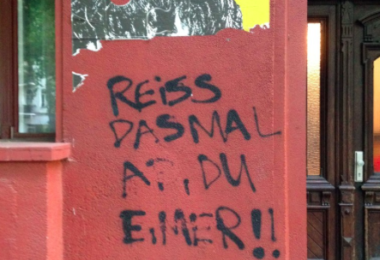 REiSS
DASMAL
AB, DU
EiMER!!